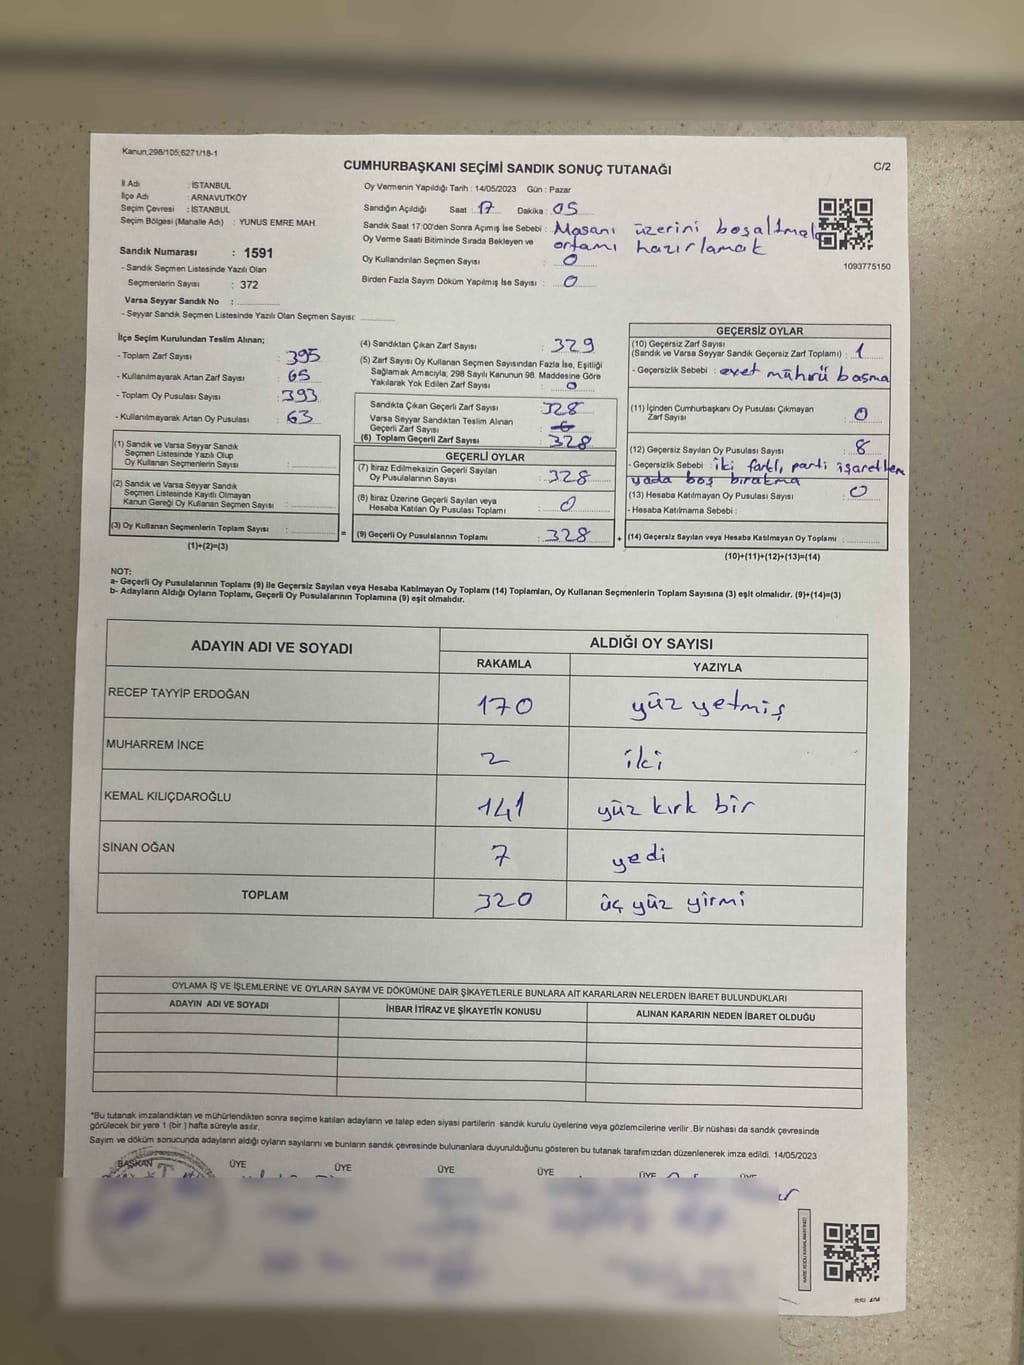 Kanun;298/105;6271/18-1
CUMHURBAŞKANI SEÇİMİ SANDIK SONUÇ TUTANAĞI
C/2
İl Adı : İSTANBUL
İlçe Adı : ARNAVUTKÖY
Seçim Çevresi : İSTANBUL
Seçim Bölgesi (Mahalle Adı) : YUNUS EMRE MAH.
Sandık Numarası : 1591
- Sandık Seçmen Listesinde Yazılı Olan
Seçmenlerin Sayısı : 372
Varsa Seyyar Sandık No :
- Seyyar Sandık Seçmen Listesinde Yazılı Olan Seçmen Sayısı:
Oy Vermenin Yapıldığı Tarih : 14/05/2023 Gün : Pazar
Sandığın Açıldığı Saat : 17 Dakika : 05
Sandık Saat 17:00'den Sonra Açımış İse Sebebi : Masanı üzerini boşaltmak
ortamı hazırlamak
Oy Verme Saati Bitiminde Sırada Bekleyen ve
Oy Kullandırılan Seçmen Sayısı : 0
Birden Fazla Sayım Döküm Yapılmış İse Sayısı : 0
1093775150
İlçe Seçim Kurulundan Teslim Alınan;
- Toplam Zarf Sayısı : 395
- Kullanılmayarak Artan Zarf Sayısı : 65
- Toplam Oy Pusulası Sayısı : 393
- Kullanılmayarak Artan Oy Pusulası : 63
(1) Sandık ve Varsa Seyyar Sandık
Seçmen Listesinde Yazılı Olup
Oy Kullanan Seçmenlerin Sayısı :
(2) Sandık ve Varsa Seyyar Sandık
Seçmen Listesinde Kayıtlı Olmayan
Kanun Gereği Oy Kullanan Seçmen Sayısı :
(3) Oy Kullanan Seçmenlerin Toplam Sayısı :
(1)+(2)=(3)
(4) Sandıktan Çıkan Zarf Sayısı : 329
(5) Zarf Sayısı Oy Kullanan Seçmen Sayısından Fazla İse, Eşitliği
Sağlamak Amacıyla; 298 Sayılı Kanunun 98. Maddesine Göre
Yakılarak Yok Edilen Zarf Sayısı : 0
Sandıkta Çıkan Geçerli Zarf Sayısı : 328
Varsa Seyyar Sandıktan Teslim Alınan
Geçerli Zarf Sayısı :
(6) Toplam Geçerli Zarf Sayısı : 328
GEÇERLİ OYLAR
(7) İtiraz Edilmeksizin Geçerli Sayılan
Oy Pusulalarının Sayısı : 328
(8) İtiraz Üzerine Geçerli Sayılan veya
Hesaba Katılan Oy Pusulası Toplamı : 0
= (9) Geçerli Oy Pusulalarının Toplamı : 328 +
GEÇERSİZ OYLAR
(10) Geçersiz Zarf Sayısı
(Sandık ve Varsa Seyyar Sandık Geçersiz Zarf Toplamı) : 1
- Geçersizlik Sebebi : evet mührü basma
(11) İçinden Cumhurbaşkanı Oy Pusulası Çıkmayan
Zarf Sayısı : 0
(12) Geçersiz Sayılan Oy Pusulası Sayısı : 8
- Geçersizlik Sebebi : iki farklı parti işaretlem
yada boş bırakma
(13) Hesaba Katılmayan Oy Pusulası Sayısı : 0
- Hesaba Katılmama Sebebi :
(14) Geçersiz Sayılan veya Hesaba Katılmayan Oy Toplamı :
(10)+(11)+(12)+(13)=(14)
NOT:
a- Geçerli Oy Pusulalarının Toplam (9) ile Geçersiz Sayılan veya Hesaba Katılmayan Oy Toplamı (14) Toplamları, Oy Kullanan Seçmenlerin Toplam Sayısına (3) eşit olmalıdır. (9)+(14)=(3)
b- Adayların Aldığı Oyların Toplamı, Geçerli Oy Pusulalarının Toplamına (9) eşit olmalıdır.
ADAYIN ADI VE SOYADI
ALDIĞI OY SAYISI
RAKAMLA YAZIYLA
RECEP TAYYİP ERDOĞAN 170 yüz yetmiş
MUHARREM İNCE 2 iki
KEMAL KILIÇDAROĞLU 141 yüz kırk bir
SİNAN OĞAN 7 yedi
TOPLAM 320 üç yüz yirmi
OYLAMA İŞ VE İŞLEMLERİNE VE OYLARIN SAYIM VE DÖKÜMÜNE DAİR ŞİKAYETLERLE BUNLARA AİT KARARLARIN NELERDEN İBARET BULUNDUKLARI
ADAYIN ADI VE SOYADI İHBAR İTİRAZ VE ŞİKAYETİN KONUSU ALINAN KARARIN NEDEN İBARET OLDUĞU
*Bu tutanak imzalandıktan ve mühürlendikten sonra seçime katılan adayların ve talep eden siyasi partilerin sandık kurulu üyelerine veya gözlemcilerine verilir .Bir nüshası da sandık çevresinde
görülecek bir yere 1 (bir ) hafta süreyle asılır.
Sayım ve döküm sonucunda adayların aldığı oyların sayılarını ve bunların sandık çevresinde bulunanlara duyurulduğunu gösteren bu tutanak tarafımızdan düzenlenerek imza edildi. 14/05/2023
BAŞKAN ÜYE ÜYE ÜYE ÜYE ÜYE ÜYE